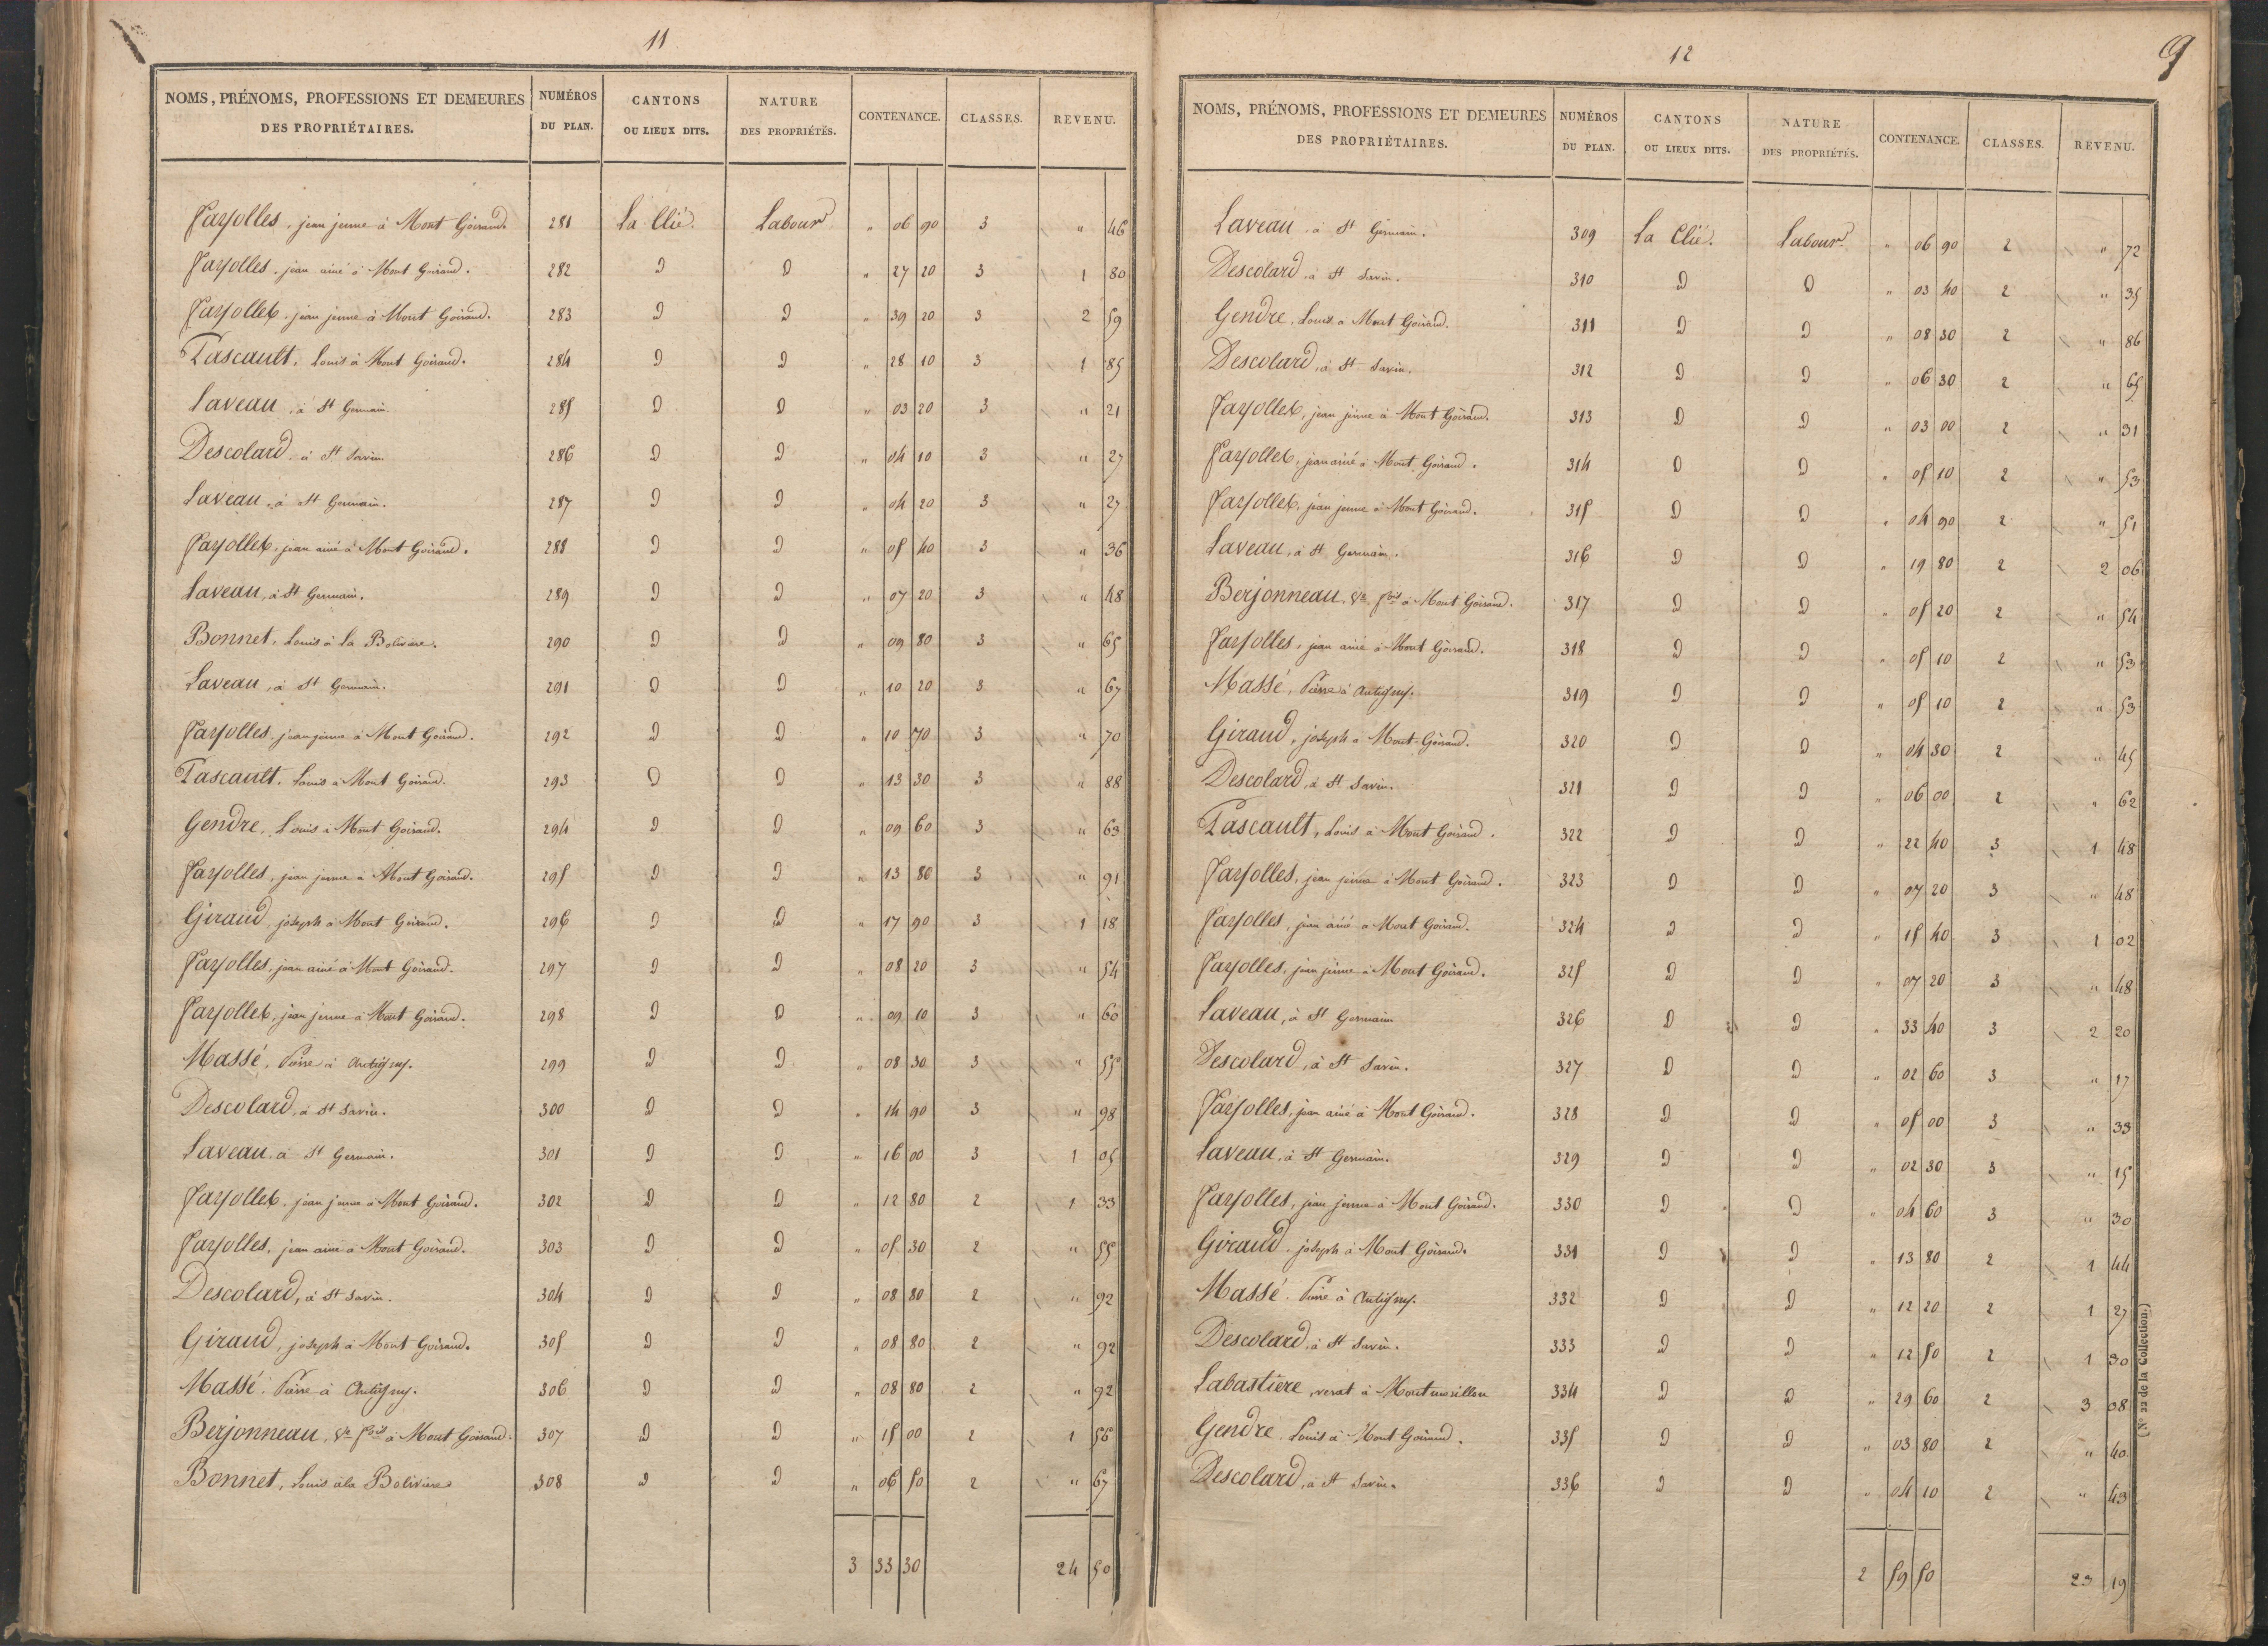 11
NOMS, PRÉNOMS, PROFESSIONS ET DEMEURES DES PROPRIÉTAIRES. NUMÉROS DU PLAN. CANTONS OU LIEUX DITS. NATURE DES PROPRIÉTÉS. CONTENANCE. CLASSES. REVENU.
Fayolles, jean jeune à Mont Goirand. 281 La Clié. Labour " 06 90 3 " 46
Fayolles, jean ainé à Mont Goirand. 282 D D " 27 20 3 1 80
Fayolles, jean jeune à Mont Goirand. 283 D D " 39 20 3 2 59
Pascault, Louis à Mont Goirand. 284 D D " 28 10 3 1 85
Laveau, à St Germain. 285 D D " 03 20 3 " 21
Descolard à St Savin. 286 D D " 04 10 3 " 27
Laveau, à St Germain. 287 D D " 04 20 3 " 27
Fayolles, jean ainé à Mont Goirand. 288 D D " 05 40 3 " 36
Laveau, à St Germain. 289 D D " 07 20 3 " 48
Bonnet, Louis à la Bolivière. 290 D D " 09 80 3 " 65
Laveau, à St Germain. 291 D D " 10 20 3 " 67
Fayolles, jean jeune à Mont Goirand. 292 D D " 10 70 3 " 70
Pascault, Louis à Mont Goirand. 293 D D " 13 30 3 " 88
Gendre, Louis à Mont Goirand. 294 D D " 09 60 3 " 63
Fayolles, jean jeune à Mont Goirand. 295 D D " 13 80 3 " 91
Giraud, joseph à Mont Goirand. 296 D D " 17 90 3 1 18
Fayolles, jean ainé à Mont Goirand. 297 D D " 08 20 3 " 54
Fayolles, jean jeune à Mont Goirand. 298 D D " 09 10 3 " 60
Massé, Pierre à Antigny. 299 D D " 08 30 3 " 55
Descolard, à St Savin. 300 D D " 14 90 3 " 98
Laveau, à St Germain. 301 D D " 16 00 3 1 05
Fayolles, jean jeune à Mont Goirand. 302 D D " 12 80 2 1 33
Fayolles, jean ainé à Mont Goirand. 303 D D " 05 30 2 " 55
Descolard, à St Savin. 304 D D " 08 80 2 " 92
Giraud, joseph à Mont Goirand. 305 D D " 08 80 2 " 92
Massé, Pierre à Antigny. 306 D D " 08 80 2 " 92
Berjonneau, Ve fois à Mont Goirand. 307 D D " 15 00 2 1 56
Bonnet, Louis à la Bolivière 308 D D " 06 50 2 " 67
3 33 30 24 50
12
9
NOMS, PRÉNOMS, PROFESSIONS ET DEMEURES DES PROPRIÉTAIRES. NUMÉROS DU PLAN. CANTONS OU LIEUX DITS. NATURE DES PROPRIÉTÉS. CONTENANCE. CLASSES. REVENU.
Laveau, à St Germain. 309 La Clié. Labour " 06 90 2 " 72
Descolard, à St Savin. 310 D D " 03 40 2 " 35
Gendre, Louis à Mont Goirand. 311 D D " 08 30 2 " 86
Descolard, à St Savin. 312 D D " 06 30 2 " 65
Fayolles, jean jeune à Mont Goirand. 313 D D " 03 00 2 " 31
Fayolles, jean ainé à Mont Goirand. 314 D D " 05 10 2 " 53
Fayolles, jean jeune à Mont Goirand. 315 D D " 04 90 2 " 51
Laveau, à St Germain. 316 D D " 19 80 2 2 06
Berjonneau, Ve fois à Mont Goirand. 317 D D " 05 20 2 " 54
Fayolles, jean ainé à Mont Goirand. 318 D D " 05 10 2 " 53
Massé, Pierre à Antigny. 319 D D " 05 10 2 " 53
Giraud, joseph à Mont-Goirand. 320 D D " 04 30 2 " 45
Descolard, à St Savin. 321 D D " 06 00 2 " 62
Pascault, Louis à Mont Goirand. 322 D D " 22 40 3 1 48
Fayolles, jean jeune à Mont Goirand. 323 D D " 07 20 3 " 48
Fayolles, jean ainé à Mont Goirand. 324 D D " 15 40 3 1 02
Fayolles, jean jeune à Mont Goirand. 325 D D " 07 20 3 " 48
Laveau, à St Germain 326 D D " 33 40 3 2 20
Descolard, à St Savin. 327 D D " 02 60 3 " 17
Fayolles, jean ainé à Mont Goirand. 328 D D " 05 00 3 " 33
Laveau, à St Germain. 329 D D " 02 30 3 " 15
Fayolles, jean jeune à Mont Goirand. 330 D D " 04 60 3 " 30
Giraud, joseph à Mont Goirand. 331 D D " 13 80 2 1 44
Massé, Pierre à Antigny. 332 D D " 12 20 2 1 27
Descolard, à St Savin. 333 D D " 12 50 2 1 30
Labastiere, verat à Montmorillon 334 D D " 29 60 2 3 08
Gendre, Louis à Mont Goirand. 335 D D " 03 80 2 " 40
Descolard, à St Savin. 336 D D " 04 10 2 " 43
2 59 50 23 19
(No 22 de la Collection.)